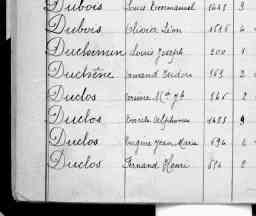 Dubois Louis Emmanuel 1423 3
Dubois Olivier Léon 1515 4
Duchemin Louis Joseph 200 1
Duchêne Armand Isidore 363 2
Duclos 345 2
Duclos Alphonse 1423 9
Duclos Eugène Jean Marie 694 4
Duclos Fernand Henri 814 2